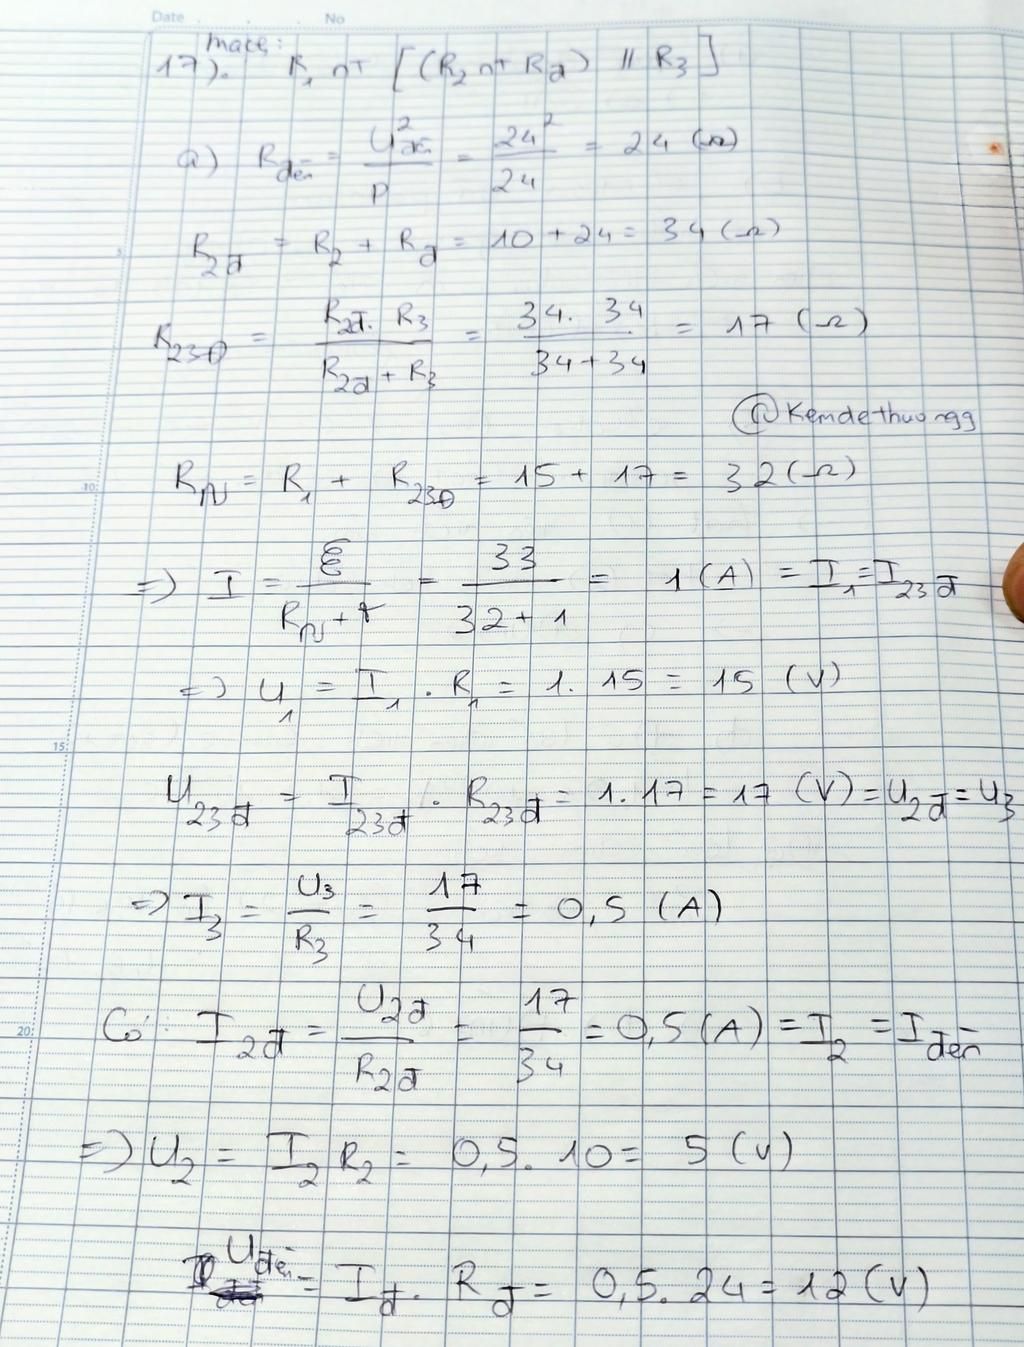 Date . . . No
Mạch:
17). R₁ nt [(R₂ nt R_đ) // R₃]
a) R_đèn = U²_đm / P = 24² / 24 = 24 (Ω)
R_2đ = R₂ + R_đ = 10 + 24 = 34 (Ω)
R_23đ = R_2đ. R₃ / R_2đ + R₃ = 34. 34 / 34 + 34 = 17 (Ω)
@Kemdethuongg
R_N = R₁ + R_23đ = 15 + 17 = 32 (Ω)
=> I = ℰ / R_N + r = 33 / 32 + 1 = 1 (A) = I₁ = I_23đ
=> U₁ = I₁ . R₁ = 1. 15 = 15 (V)
U_23đ = I_23đ . R_23đ = 1. 17 = 17 (V) = U_2đ = U₃
=> I₃ = U₃ / R₃ = 17 / 34 = 0,5 (A)
Có: I_2đ = U_2đ / R_2đ = 17 / 34 = 0,5 (A) = I₂ = I_đèn
=> U₂ = I₂ R₂ = 0,5. 10 = 5 (V)
U_đèn = I_đ. R_đ = 0,5. 24 = 12 (V)
5
10
15
20